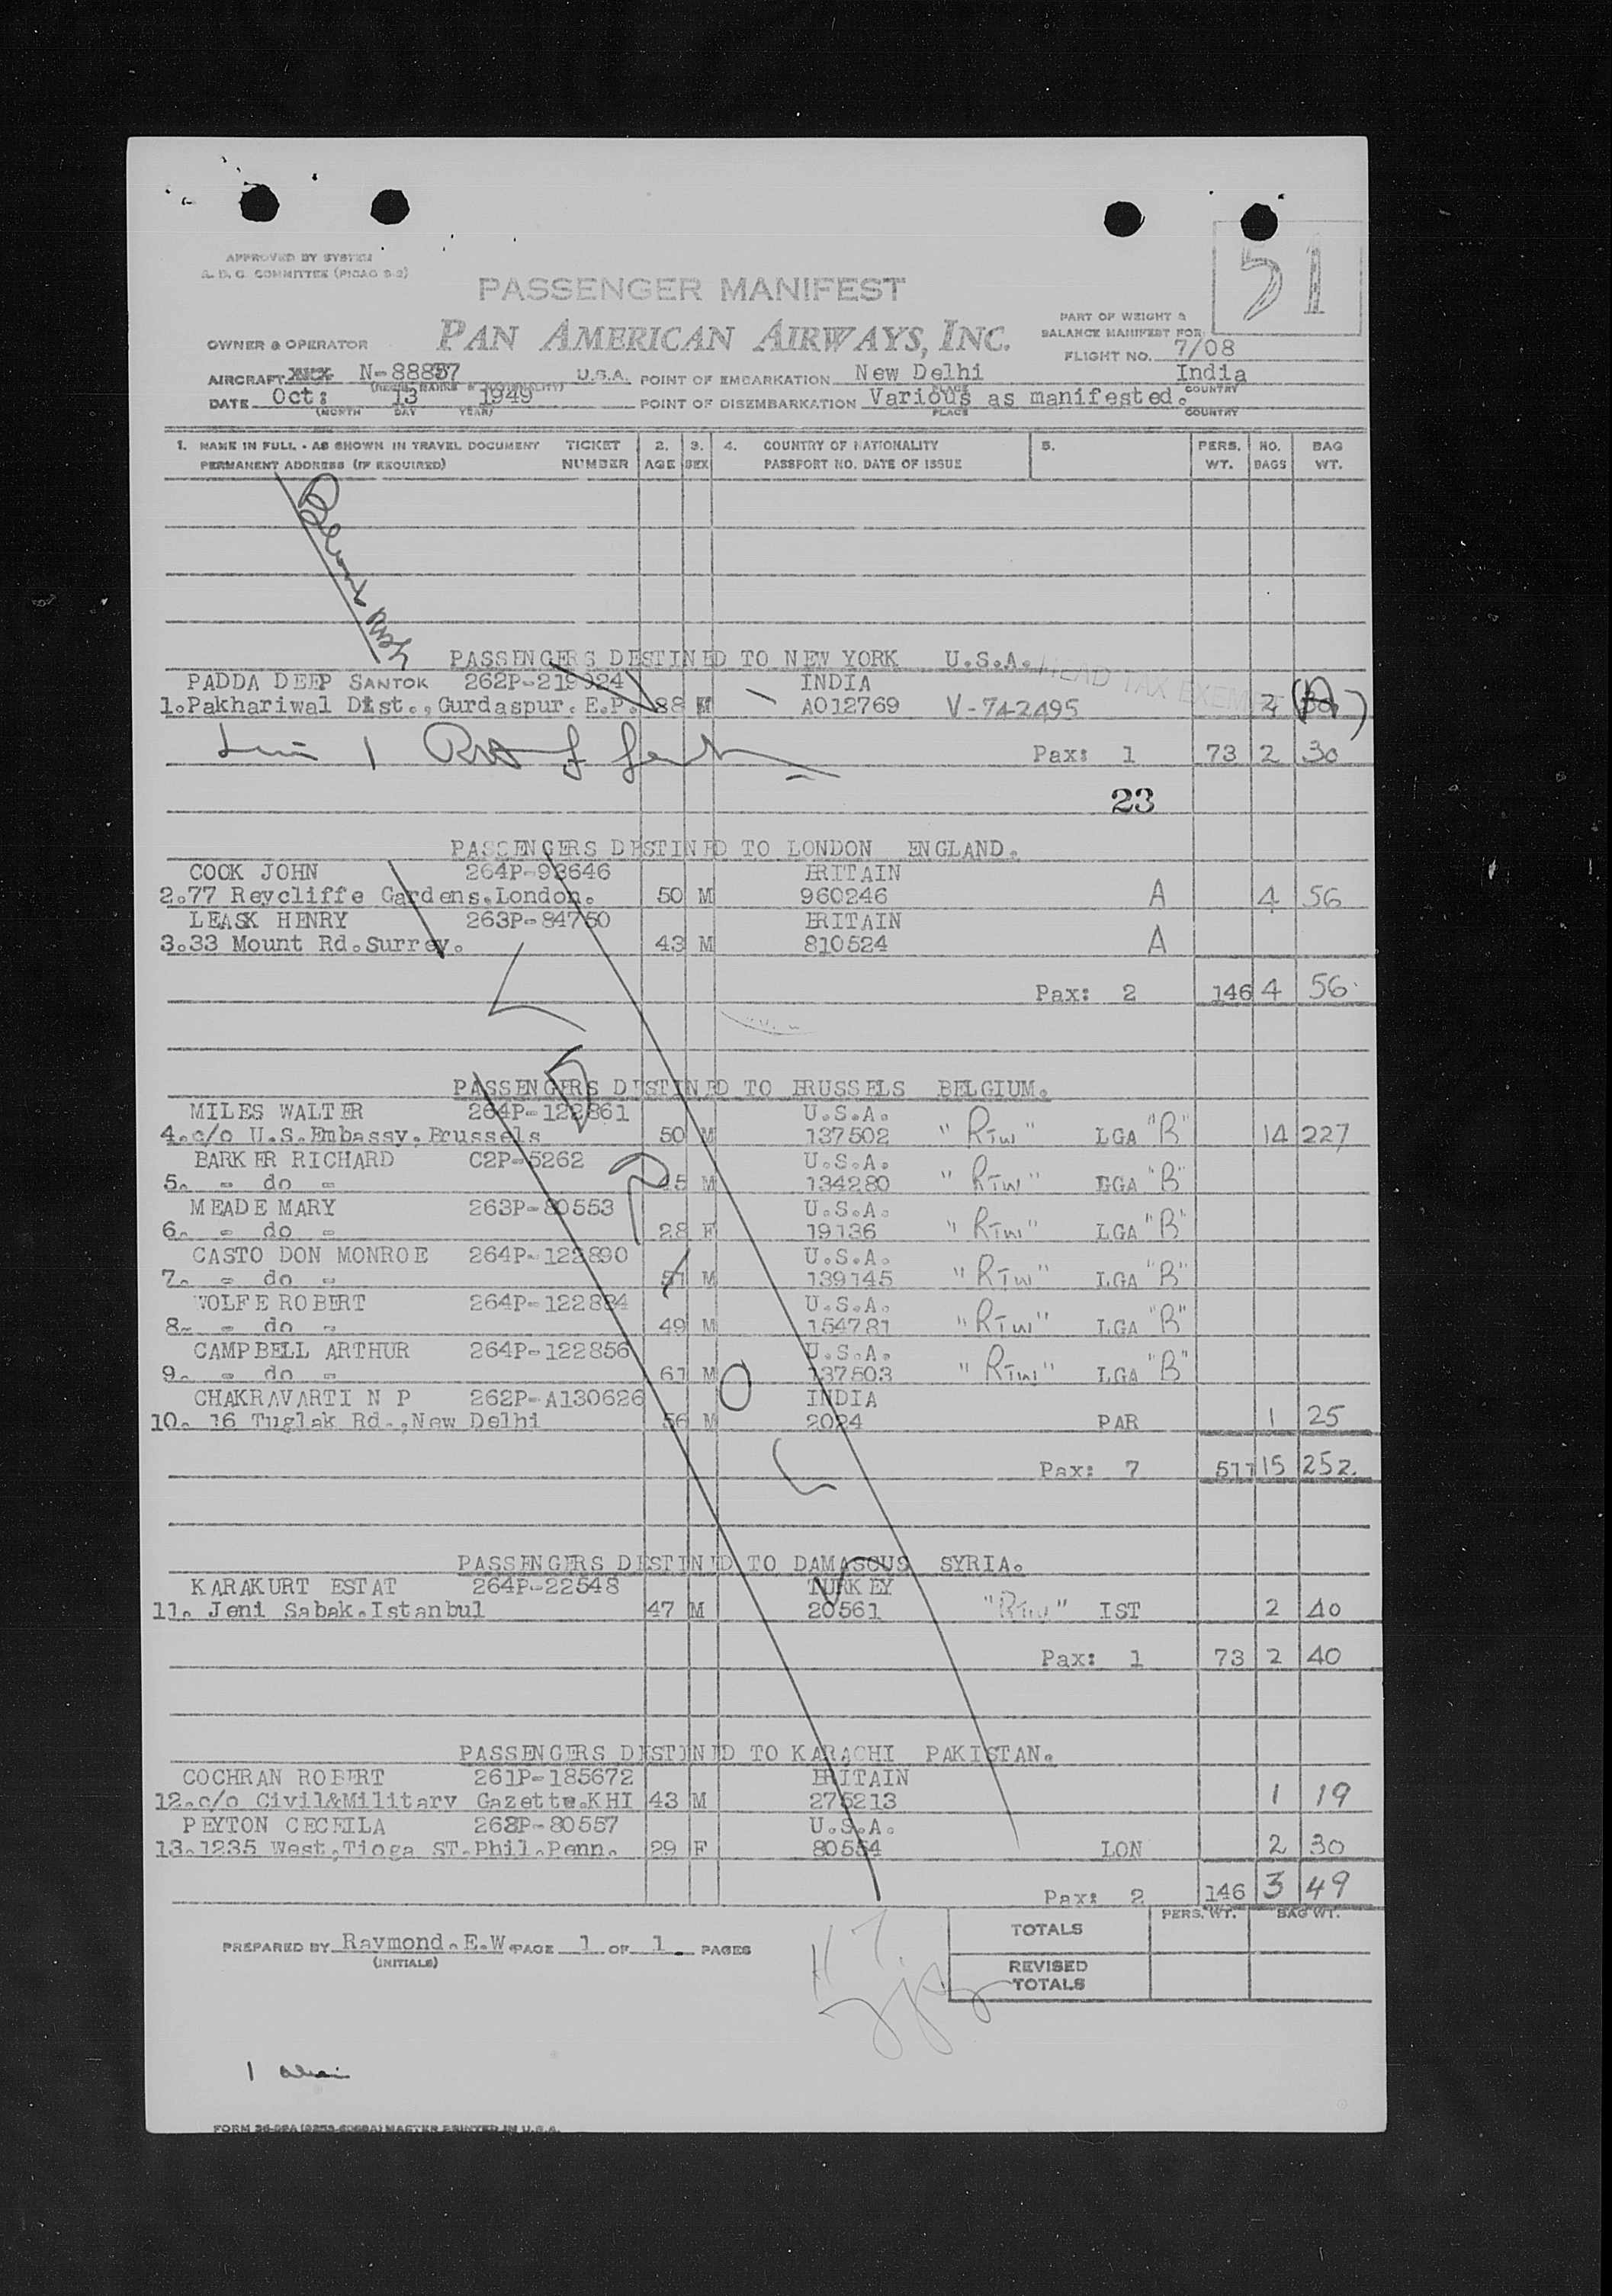 APPROVED BY SYSTEM
A. D. C. COMMITTEE (PICAO 9-2)
51
PASSENGER MANIFEST
PAN AMERICAN AIRWAYS, INC.
PART OF WEIGHT &
BALANCE MANIFEST FOR
OWNER & OPERATOR
FLIGHT NO. 7/08
AIRCRAFT N-88857 U.S.A. POINT OF EMBARKATION New Delhi India
(REGIS. MARKS & NATIONALITY) PLACE COUNTRY
DATE Oct: 13 1949 POINT OF DISEMBARKATION Various as manifested.
(MONTH DAY YEAR) PLACE COUNTRY
1. NAME IN FULL - AS SHOWN IN TRAVEL DOCUMENT TICKET 2. 3. 4. COUNTRY OF NATIONALITY 5. PERS. NO. BAG
PERMANENT ADDRESS (IF REQUIRED) NUMBER AGE SEX PASSPORT NO. DATE OF ISSUE WT. BAGS WT.
PASSENGERS DESTINED TO NEW YORK U.S.A.
HEAD TAX EXEMPT
PADDA DEEP SANTOK 262P-219924 INDIA
1.Pakhariwal Dist., Gurdaspur. E.P. 88 M A012769 V-742495 2 (A)
Pax: 1 73 2 30
23
PASSENGERS DESTINED TO LONDON ENGLAND.
COOK JOHN 264P-93646 BRITAIN
2.77 Reycliffe Gardens.London. 50 M 960246 A 4 56
LEASK HENRY 263P-84750 BRITAIN
3.33 Mount Rd.Surrey. 43 M 810524 A
Pax: 2 146 4 56
PASSENGERS DESTINED TO BRUSSELS BELGIUM.
MILES WALTER 264P-122861 U.S.A.
4.c/o U.S.Embassy,Brussels 50 M 137502 "RTW" LGA "B" 14 227
BARKER RICHARD C2P-5262 U.S.A.
5. - do - 45 M 134280 "RTW" LGA "B"
MEADE MARY 263P-80553 U.S.A.
6. - do - 28 F 19136 "RTW" LGA "B"
CASTO DON MONROE 264P-122890 U.S.A.
7. - do - 51 M 139145 "RTW" LGA "B"
WOLFE ROBERT 264P-122884 U.S.A.
8. - do - 49 M 154781 "RTW" LGA "B"
CAMPBELL ARTHUR 264P-122856 U.S.A.
9. - do - 61 M 137503 "RTW" LGA "B"
CHAKRAVARTI N P 262P-A130626 INDIA
10. 16 Tuglak Rd.,New Delhi 56 M 2024 PAR 1 25
Pax: 7 511 15 252.
PASSENGERS DESTINED TO DAMASCUS SYRIA.
KARAKURT ESTAT 264P-22548 TURKEY
11. Jeni Sabak.Istanbul 47 M 20561 "RTW" IST 2 40
Pax: 1 73 2 40
PASSENGERS DESTINED TO KARACHI PAKISTAN.
COCHRAN ROBERT 261P-185672 BRITAIN
12.c/o Civil&Military Gazette.KHI 43 M 275213 1 19
PEYTON CECEILA 263P-80557 U.S.A.
13.1235 West,Tioga ST.Phil.Penn. 29 F 80554 LON 2 30
Pax: 2 146 3 49
PERS. WT. BAG WT.
TOTALS
PREPARED BY Raymond.E.W. PAGE 1 OF 1. PAGES
(INITIALS)
REVISED
TOTALS
FORM 36-98A MASTER PRINTED IN U.S.A.